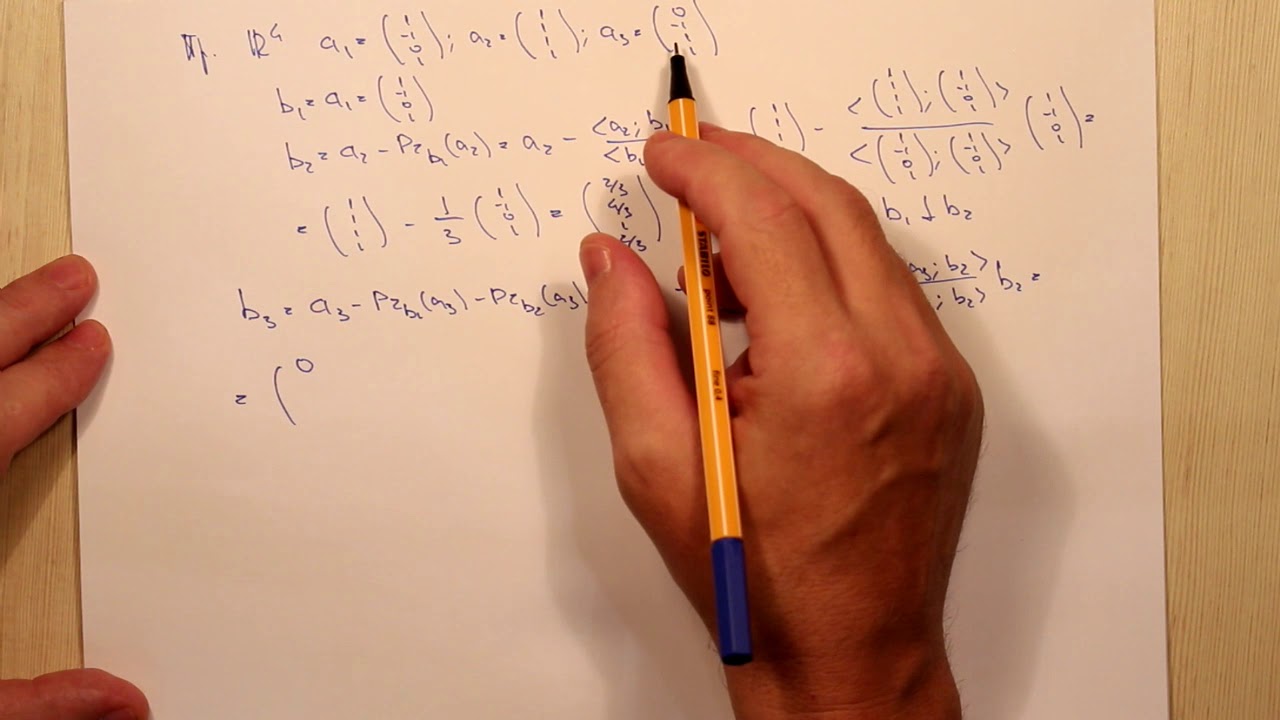 Пр. ℝ⁴ a₁ = (1 -1 0 1); a₂ = (1 1 1 1); a₃ = (0 -1 1)
b₁ = a₁ = (1 -1 0 1)
b₂ = a₂ - Pr_b₁(a₂) = a₂ - <a₂; b₁ / <b₁ (1 1 1 1) - <(1 1 1 1); (1 -1 0 1)> / <(1 -1 0 1); (1 -1 0 1)> (1 -1 0 1) =
= (1 1 1 1) - 1/3 (1 -1 0 1) = (2/3 4/3 1 2/3) b₁ ⊥ b₂
b₃ = a₃ - Pr_b₁(a₃) - Pr_b₂(a₃) a₃; b₂> / ; b₂> b₂ =
= ( 0
STABILO point 88 fine 0,4